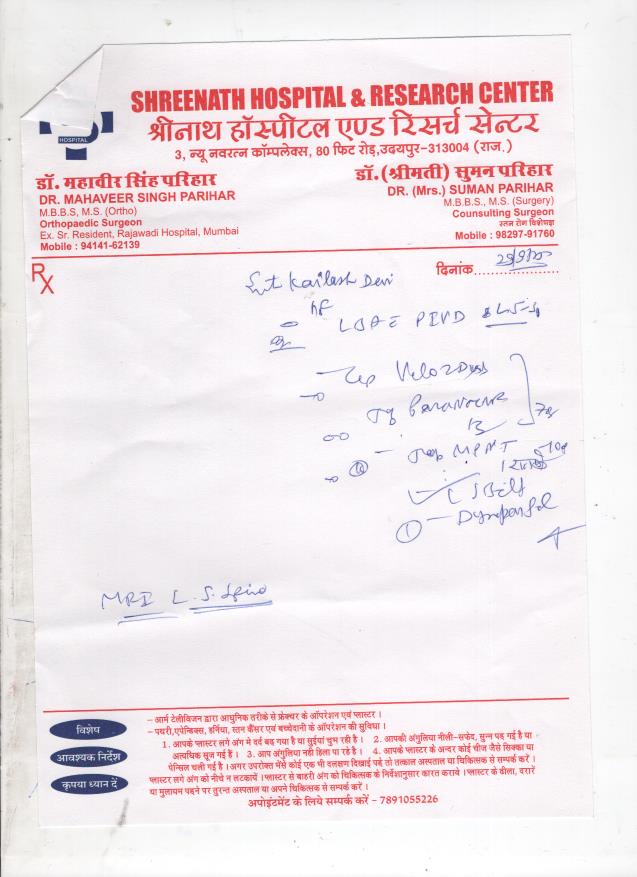 SHREENATH HOSPITAL & RESEARCH CENTER
श्रीनाथ हॉस्पीटल एण्ड रिसर्च सेन्टर
3, न्यू नवरत्न कॉम्पलेक्स, 80 फिट रोड़,उदयपुर-313004 (राज.)
HOSPITAL
डॉ. महावीर सिंह परिहार
DR. MAHAVEER SINGH PARIHAR
M.B.B.S, M.S. (Ortho)
Orthopaedic Surgeon
Ex. Sr. Resident, Rajawadi Hospital, Mumbai
Mobile : 94141-62139
डॉ.(श्रीमती) सुमन परिहार
DR. (Mrs.) SUMAN PARIHAR
M.B.B.S., M.S. (Surgery)
Counsulting Surgeon
स्तन रोग विशेषज्ञ
Mobile : 98297-91760
Rx
दिनांक....................
Kailash Devi
PIVD
MRI L.S. Spine
विशेष
आवश्यक निर्देश
कृपया ध्यान दें
– आर्म टेलीविजन द्वारा आधुनिक तरीके से फ्रेक्चर के ऑपरेशन एवं प्लास्टर ।
– पथरी,एपेन्डिक्स, हर्निया, स्तन कैंसर एवं बच्चेदानी के ऑपरेशन की सुविधा ।
1. आपके प्लास्टर लगे अंग मे दर्द बढ़ गया है या सुईयां चुभ रही है । 2. आपकी अंगुलिया नीली-सफेद, सुन्न पड़ गई है या
अत्यधिक सूज गई है । 3. आप अंगुलिया नही हिला पा रहे है । 4. आपके प्लास्टर के अन्दर कोई चीज जैसे सिक्का या
पेन्सिल चली गई है ।अगर उपरोक्त मेंसे कोई एक भी दलक्षण दिखाई पड़े तो तत्काल अस्पताल या चिकित्सक से सम्पर्क करें ।
प्लास्टर लगे अंग को नीचे न लटकायें ।प्लास्टर से बाहरी अंग को चिकित्सक के निर्देशानुसार कारत करावे ।प्लास्टर के ढीला, दरारें
या मुलायम पड़ने पर तुरन्त अस्पताल या अपने चिकित्सक से सम्पर्क करें ।
अपोइंटमेंट के लिये सम्पर्क करें - 7891055226